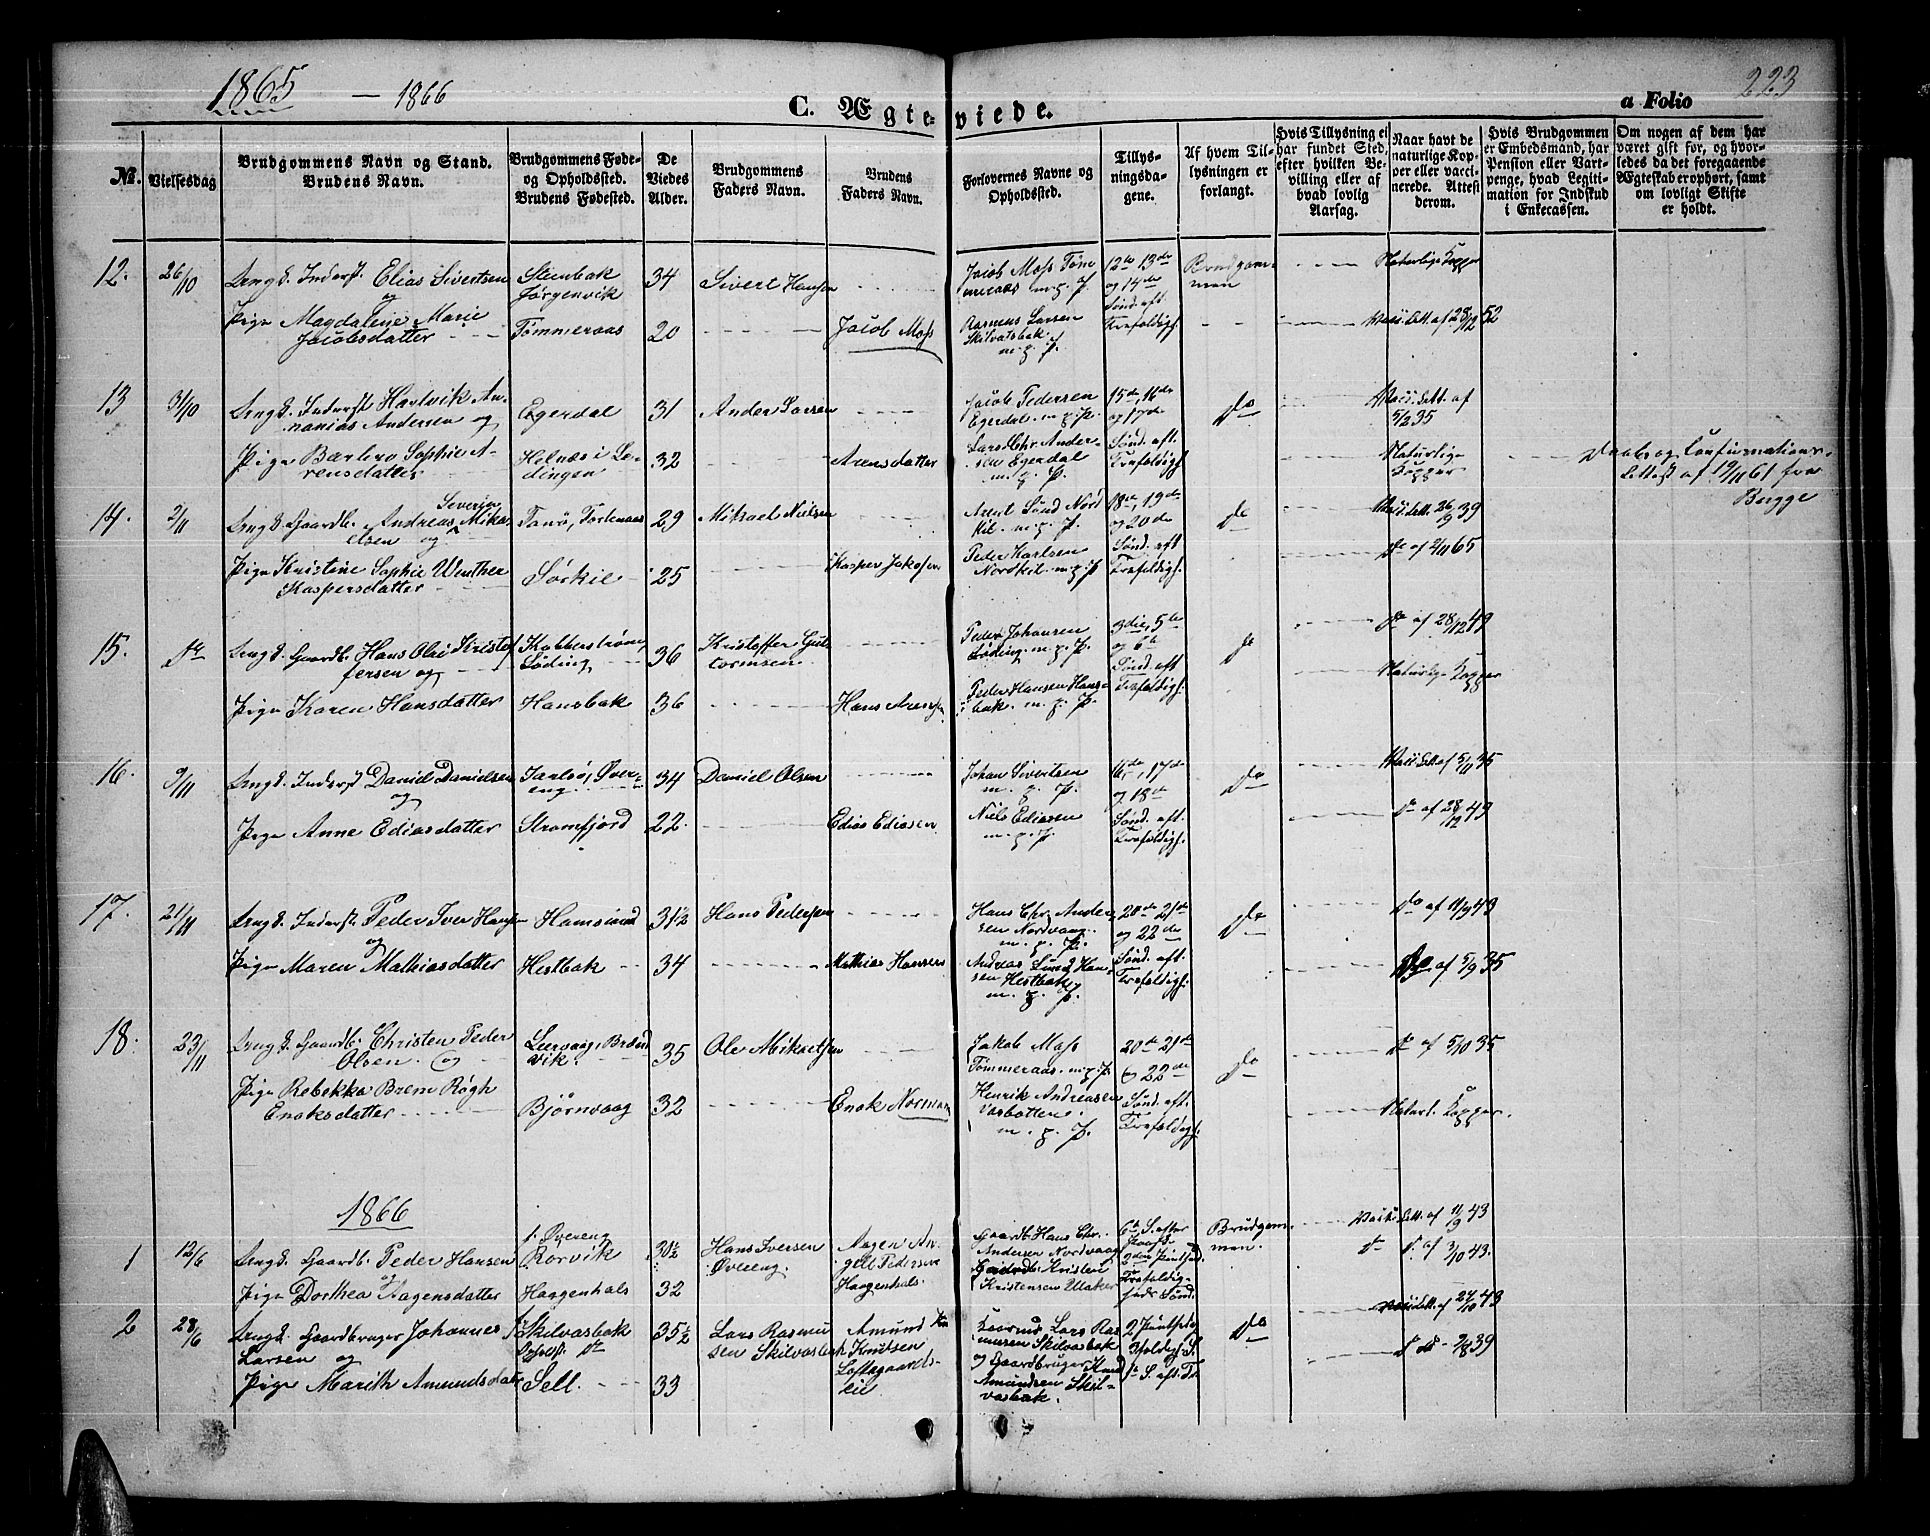 1865 — 1866
C. Ægteviede.
a Folio 223
No. Vielsesdag
Brudgommens Navn og Stand.
Brudens Navn.
Brudgommens Føde-
og Opholdssted.
Brudens Fødested.
De
Viedes
Alder.
Brudgommens
Faders Navn.
Brudens
Faders Navn.
Forlovernes Navne og
Opholdssted.
Tillys-
ningsda-
gene.
Af hvem Til-
lysningen er
forlangt.
Hvis Tillysning ei
har fundet Sted,
efter hvilken Be-
villing eller af
hvad lovlig
Aarsag.
Naar havt de
naturlige Kop-
per eller vacci-
nerede. Attest
derom.
Hvis Brudgommen
er Embedsmand, har
Pension eller Vart-
penge, hvad Legiti-
mation for Indskud
i Enkecassen.
Om nogen af dem har
været gift før, og hvor-
ledes da det foregaaende
Ægteskab er ophørt, samt
om lovligt Skifte
er holdt.
12. 26/10 Ungk. Inderst. Elias Sivertsen
og
Pige Magdalene Marie
Jacobsdatter
Steenbak
Jørgenvik
Tømmeraas
34
20
Sivert Hansen
Jacob Moss
Jacob Moss Tøm
meraas m. p. P.
Rasmus Larsen
Skilvasbak
m. p. P.
12te 13de
og 14de
Sønd. eft.
Trefoldigh.
Brudgom-
men
Naturlige Kopper
Vacc. Att. af 28/12 52
13 31/10 Ungk. Inderst Hartvik An-
nanias Andersen og
Pige Barbro Sophie A-
rensdatter
Egerdal
Holnæs i Lø-
dingen
31
32
Ander Larsen
Arensdatter
Jacob Pedersen
Egerdal m. p. P.
Lars Chr. Ander-
sen Egerdal
m. p. P.
15de, 16de
og 17de
Sønd. eft.
Trefoldigh.
Do
Vacc. Att. af
5/2 35
Naturlige
Kopper
Daabs og Confirmations-
Attest af 19/11 61 fra
Bugge
14. 2/11 Ungk. Gaardb. Andreas Severin Mika-
elsen og
Pige Kristine Sophie Winther
Kaspersdatter
Tanø,
Sørkil
29
25
Mikael Nielsen
Kasper Jakobsen
Arent Sønd Nord
kil. m. p. P.
Peder Karlsen
Nordkil. m. p. P.
18de, 19de
og 20de
Sønd. eft
Trefoldigh.
Do
Vacc. Att. 26/9 39
Do af 2/11 65
15. Do Ungk. Gaardb. Hans Olai Kristof
fersen og
Pige Karen Hansdatter
Kobberstrøm,
Løding
Hansbak
36
36
Kristoffer Gut-
tormsen
Hans Arensen
Peder Johansen
Løding. m. p. P.
Peder Hansen Hans-
bak. m. p. P.
3die, 5te
og 6te
Sønd. eft
Trefoldigh.
Do
Do af 28/12 49
Naturlige Kopper
16. 9/11 Ungk. Inderst Daniel Danielsen
og
Pige Anne Ediasdatter
Tarlsø, Øver-
eng.
Stromfjord
34
22.
Daniel Olsen
Edias Ediasen
Johan Sivertsen
m. p. P.
Niels Ediasen
m. p. P.
16de, 17de
og 18de
Sønd. eft.
Trefoldigh.
Do
Vacc. Att. af 5/11 35
Do af 28/12 49
17. 21/11 Ungk. Inderst. Peder Iver Hansen
og
Pige Maren Mathiasdatter
Hamsund
Hestbak
31½
34
Hans Pedersen
Mathias Hansen
Hans Chr. Ander-
sen Nordvaag.
m. p. P.
Andreas Lund Han-
sen Hestbak
m. p. P.
20de 21de
og 22de
Sønd. aft.
Trefoldigh.
Do
Do af 11/9 43
Do af 5/9 35
18. 23/11 Ungk. Gaardb. Christen Peder
Olsen. og
Pige Rebekka Brem Røgh
Enoksdatter
Leervaag, Brænd
vik.
Bjørnvaag
35
32
Ole Mikaelsen
Enok Norman
Jakob Moss
Tømmeraas. m. p. P.
Henrik Andreasen
Vasbotten.
m. p. P.
20de 21de
og 22de
Sønd. eft.
Trefoldigh.
Do
Do af 5/10 35
Naturl. Kopper.
1866
1 12/6 Ungk. Gaardb. Peder Hansen
og
Pige Dorthea Aagensdatter
f. Øvereng
Rorvik
Haagenhals
30½
32
Hans Iversen
Øvereng.
Aagen An-
gell Pedersen
Haagenhals.
Gaardb. Hans Chr.
Andersen Nordvaag
Gaardb. Kristen
Kristensen Ulvaker
6te S. efter
Paaske
2den Pintsed.
Trefoldig-
heds Sønd.
Brudgom-
men.
Vacc. Att. af 11/9 43
Do Do af 3/10 43.
2 28/6 Ungk. Gaardbruger Johannes
Larsen og
Pige Marith Amundsdatter
f. Skilvasbak
Opholdst. Do
Sell.
35½
33
Lars Rasmu
sen Skilvasbak
Amund
Knudsen
Loftsgaards-
lie
Lars Ras
mussen Skilvasbak
og Gaardbruger Knud
Amundsen Skil-
vasbak.
2 Pintsed.
Trefoldigh. S.
1te S. aft. Tr
Do
Vacc. Att. af 24/10 43
Do Do - 2/8 39